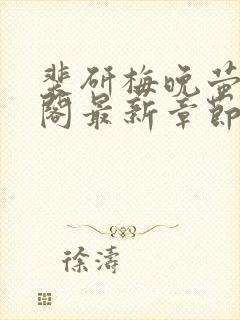 裴研梅晚萤
阁最新章节
徐涛